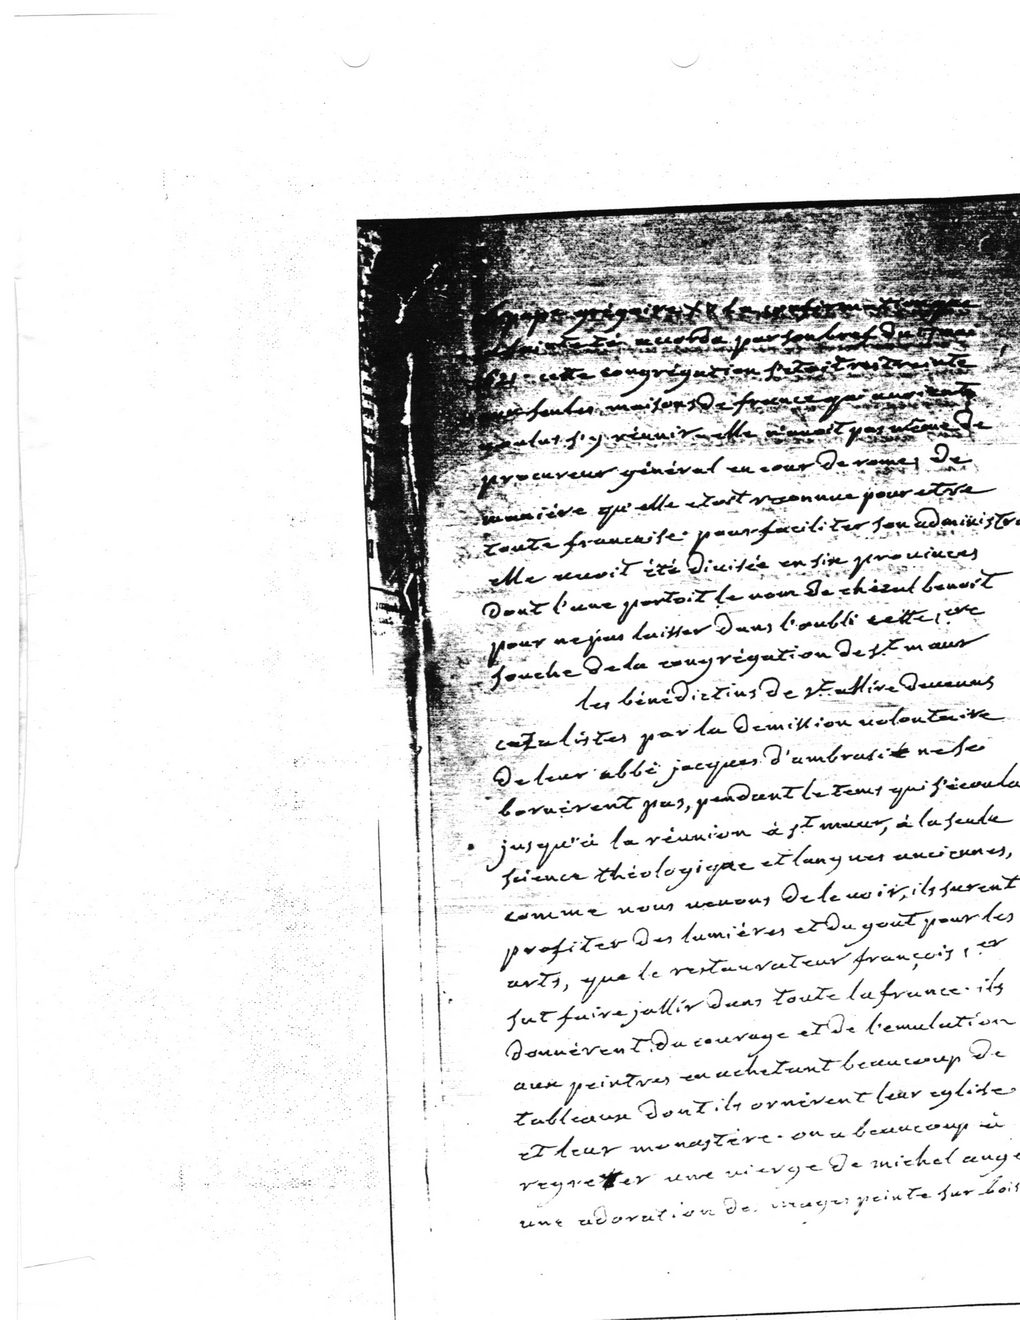 pape grégoire XV la confirmation que
sa sainteté accorda par son bref du 17 mai
1621. cette congrégation s'etoit restreinte
aux seules maisons de france qui avoient
voulus s'y réunir. elle n'avoit pas même de
procureur général en cour de rome, de
manière qu'elle etoit reconnue pour etre
toute francaise. pour faciliter son administra
elle avoit été divisée en six provinces
dont l'une portoit le nom de chézal benoit
pour ne pas laisser dans l'oubli cette
souche de la congrégation de st maur
les bénédictins de st allire devenus
cazalistes par la demission volontaire
de leur abbé jacques d'ambroise ne se
bornèrent pas, pendant le tems qui s'écoula
jusqu'à la réunion à st maur, à la seule
science théologique et langues anciennes,
comme nous venons de le voir, ils surent
profiter des lumiéres et du gout pour les
arts, que le restaurateur françois, 1er
fut faire jallir dans toute la france. ils
donnèrent du courage et de l'emulation
aux peintres en achetant beaucoup de
tableaux dont ils ornèrent leur eglise
et leur monastère. on a beaucoup à
regretter une vierge de michel ange
une adoration de mages peinte sur bois